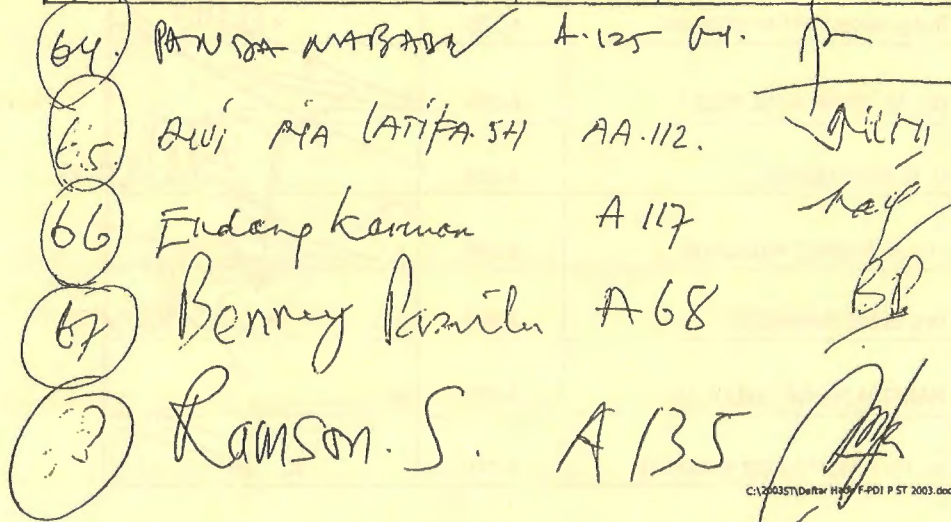 64. PANDA NABABAN A.125 64.
65. DWI RIA LATIFA.SH AA.112.
66 Endang Karman A 117
67 Benny Pasaribu A 68 BP
Ramson.S. A 135
C:\2003ST\Daftar Hadir F-PDI P ST 2003.doc